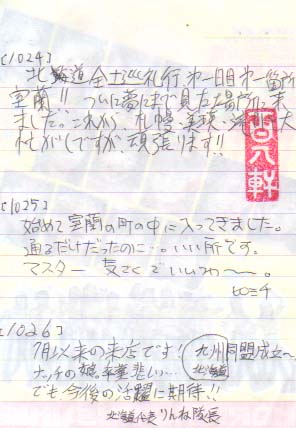 [1024]
北海道全土巡礼行 第一日目 第一箇所
室蘭!! ついに夢にまで見た場所に来
ました。これから、札幌、美瑛、
忙がしですが、頑張ります!!
[1025]
始めて室蘭の町の中に入ってきました。
通るだけだったのに…。いい所です。
マスター 気さくでいいわ〜〜。
ヒロミチ
[1026]
7月以来の来店です! 九州 北海道 同盟成立〜
ナッチの 卒業 悲しい…
でも今後の活躍に期待!!
北海道代表 りんね隊長